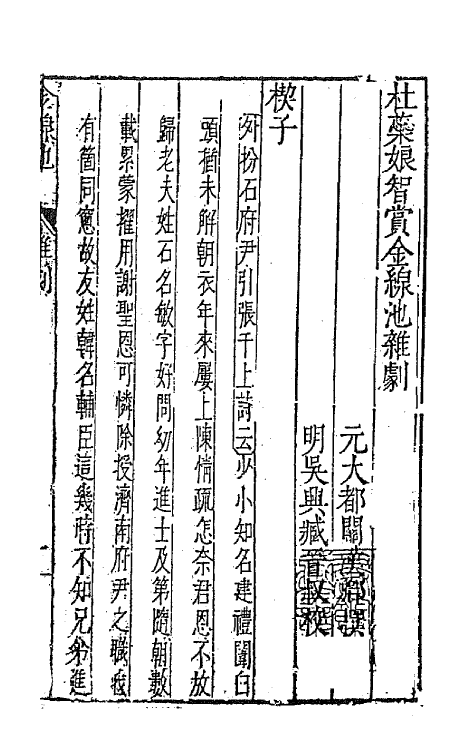 杜蘂娘智賞金線池雜劇
元大都關漢卿撰
明吳興臧晉叔校
楔子
外扮石府尹引張千上詩云少小知名建禮闈白
頭猶未解朝衣年來屢上陳情疏怎奈君恩不放
歸老夫姓石名敏字好問幼年進士及第隨朝數
載累蒙擢用謝聖恩可憐除授濟南府尹之職我
有箇同窻故友姓韓名輔臣這幾時不知兄弟進
金線池
雜劇
一